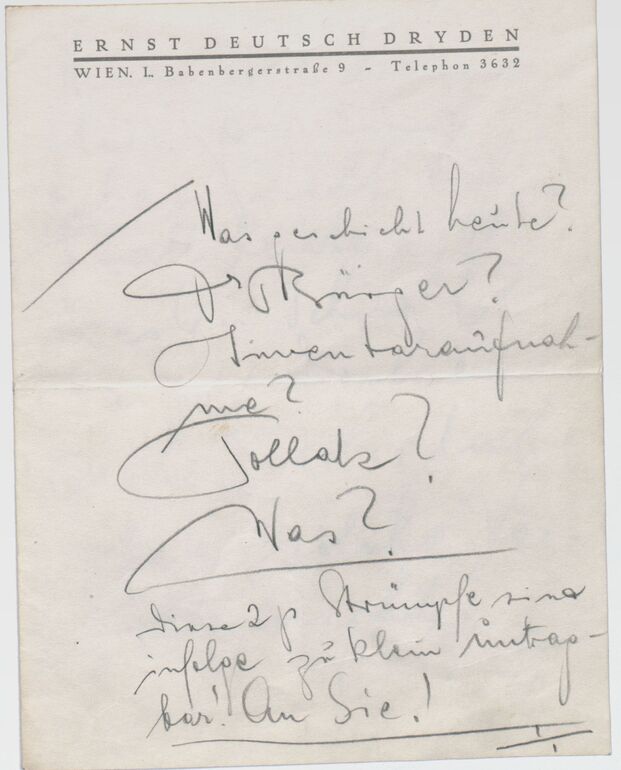 ERNST DEUTSCH DRYDEN
WIEN. I., Babenbergerstraße 9 - Telephon 3632
Was geschieht heute?
Dr Bürger?
Inventaraufnah-
me?
Pollak?
Was?
diese 2 p Strümpfe sind
infolge zu klein untrag-
bar! An Sie!